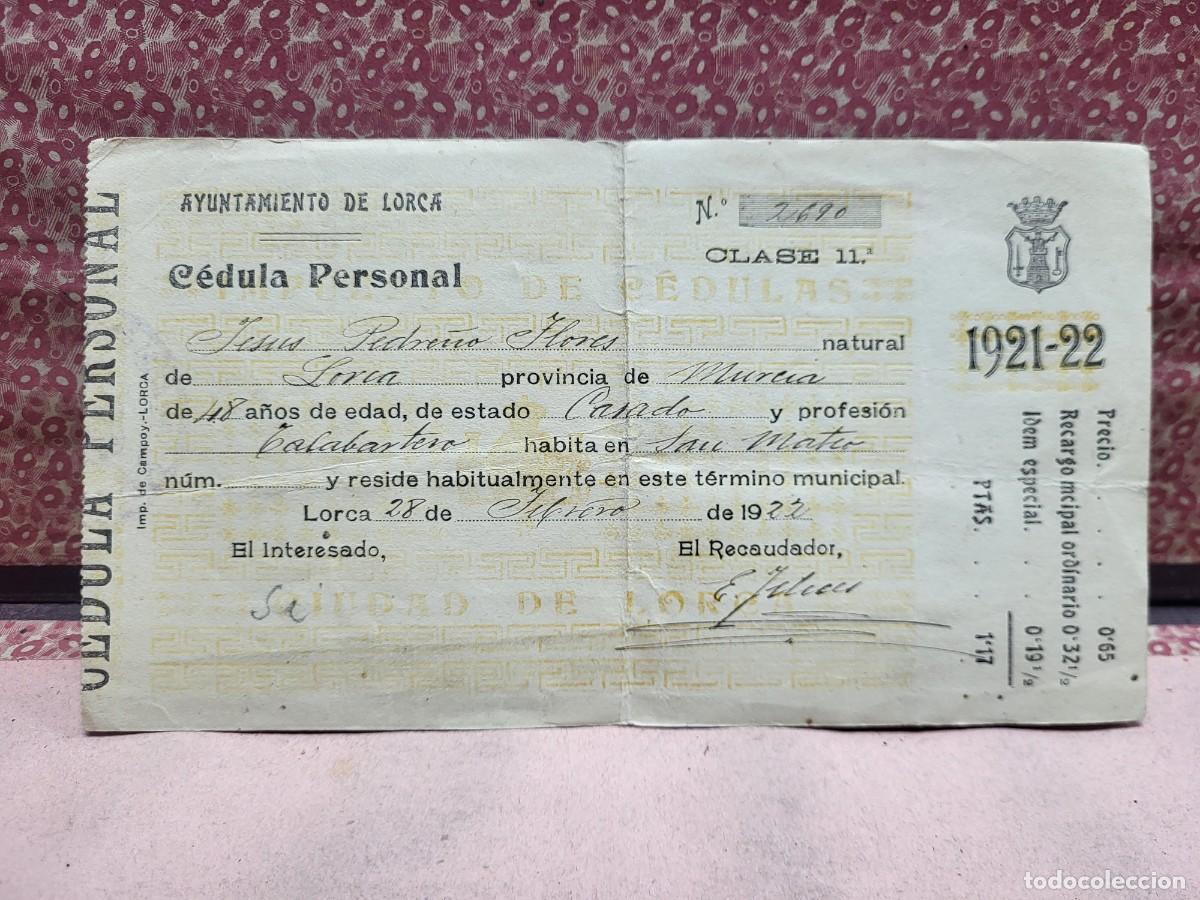 CÉDULA PERSONAL
Imp. de Campoy.-LORCA
AYUNTAMIENTO DE LORCA
Cédula Personal
N.º 2690
CLASE 11.ª
IMPUESTO DE CÉDULAS
Jesus Pedreño Flores natural
de Lorca provincia de Murcia
de 48 años de edad, de estado Casado y profesión
Talabartero habita en San Mateo
núm. y reside habitualmente en este término municipal.
Lorca 28 de Febrero de 1922
El Interesado,
El Recaudador,
CIUDAD DE LORCA
1921-22
Precio. . . . 0'65
Recargo mcipal ordinario 0'32 1/2
Idem especial. . . . 0'19 1/2
PTAS. . . . 1'17
todocoleccion